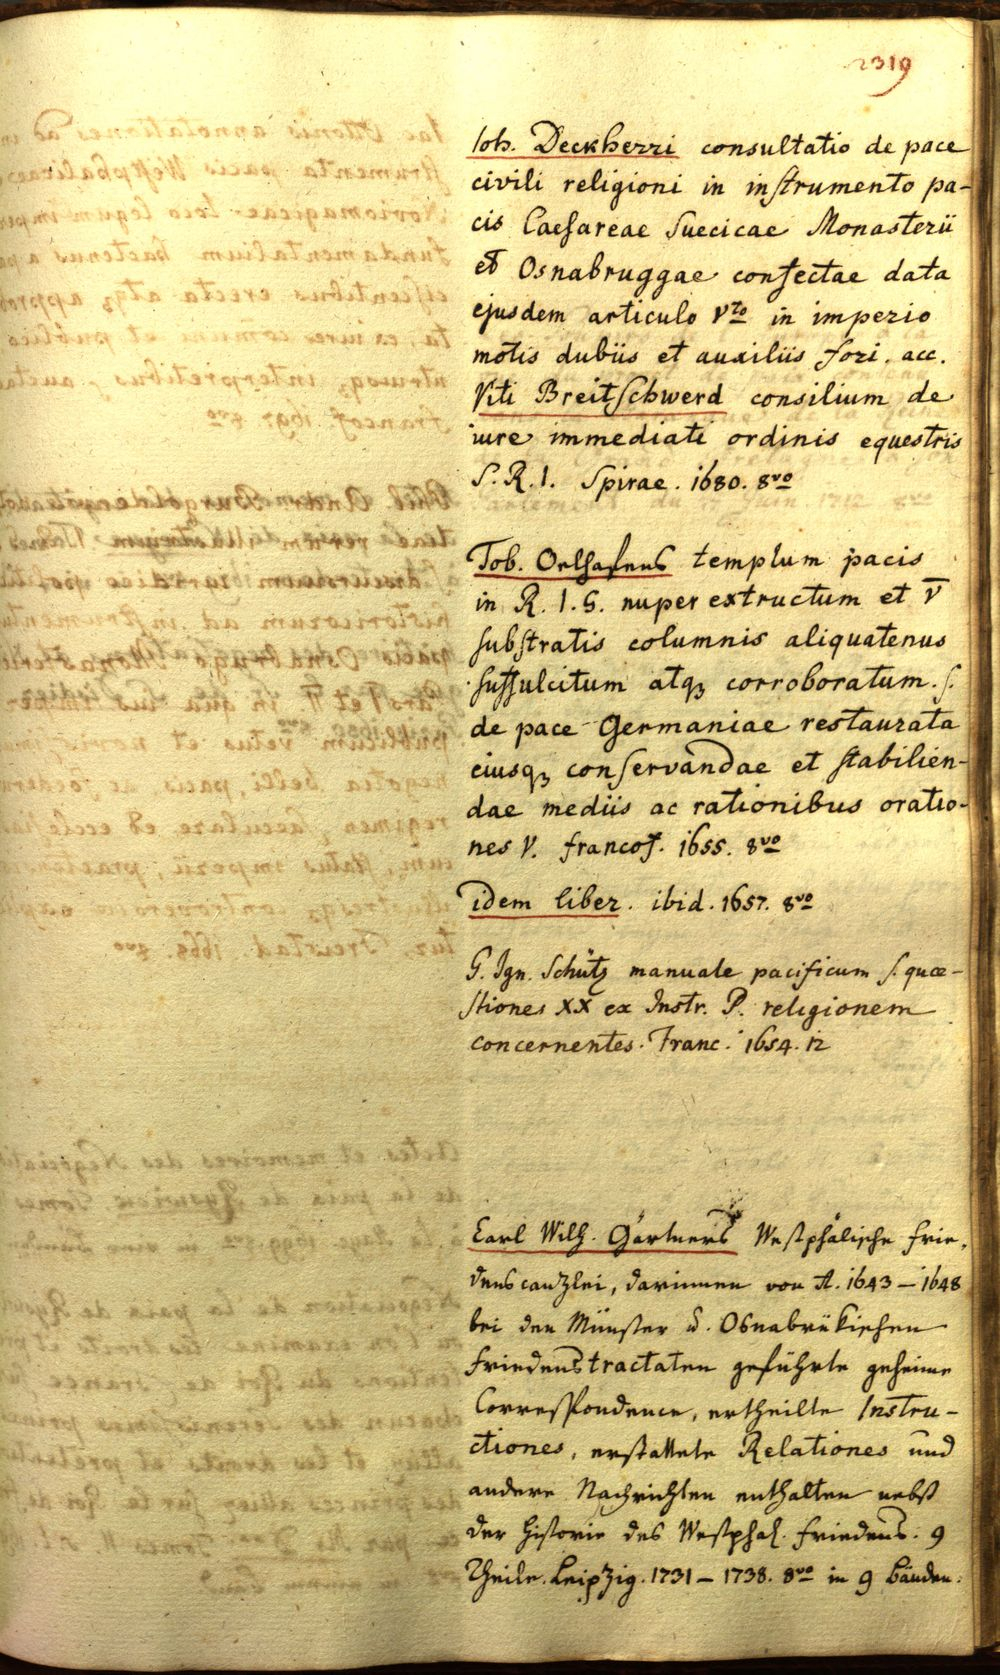 2319
Ioh. Deckherri consultatio de pace
civili religioni in instrumento pa-
cis Caesareae Suecicae Monasterii
et Osnabruggae confectae data
ejusdem articulo Vto in imperio
motis dubiis et auxiliis fori. acc.
Viti Breitschwerd consilium de
iure immediati ordinis equestris
S. R. I. Spirae. 1680. 8vo
Tob. Oelhafens templum pacis
in R. I. G. nuper extructum et V̄
substratis columnis aliquatenus
suffulcitum atq; corroboratum. s.
de pace Germaniae restaurata
eiusq; conservandae et stabilien-
dae mediis ac rationibus oratio-
nes V. francof. 1655. 8vo
idem liber. ibid. 1657. 8vo
G. Ign. Schütz manuale pacificum s. quae-
stiones XX ex Instr. P. religionem
concernentes. Franc. 1654. 12
Carl Wilh. Gärtners Westphälische Frie-
denscanzlei, darinnen von A. 1643 – 1648
bei den Münster u. Osnabrükischen
Friedenstractaten geführte geheime
Correspondence, ertheilte Instru-
ctiones, erstattete Relationes und
andere Nachrichten enthalten nebst
der Historie des Westphal. Friedens. 9
Theile. Leipzig. 1731 – 1738. 8vo in 9 Bänden.